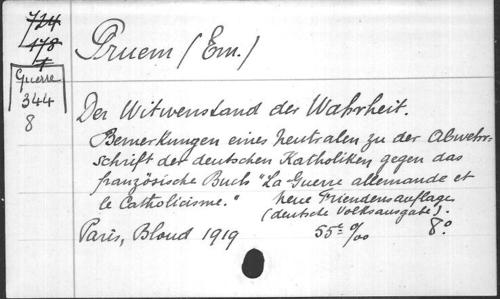 724
178
1
Guerre
344
8
Pruem (Em.)
Der Witwenstand der Wahrheit.
Bemerkungen eines Neutralen zu der Abwehr-
schrift der deutschen Katholiken gegen das
französische Buch "La Guerre allemande et
le Catholicisme." Neue Friedensauflage
(deutsche Volksausgabe).
Paris, Bloud 1919 55e 8°